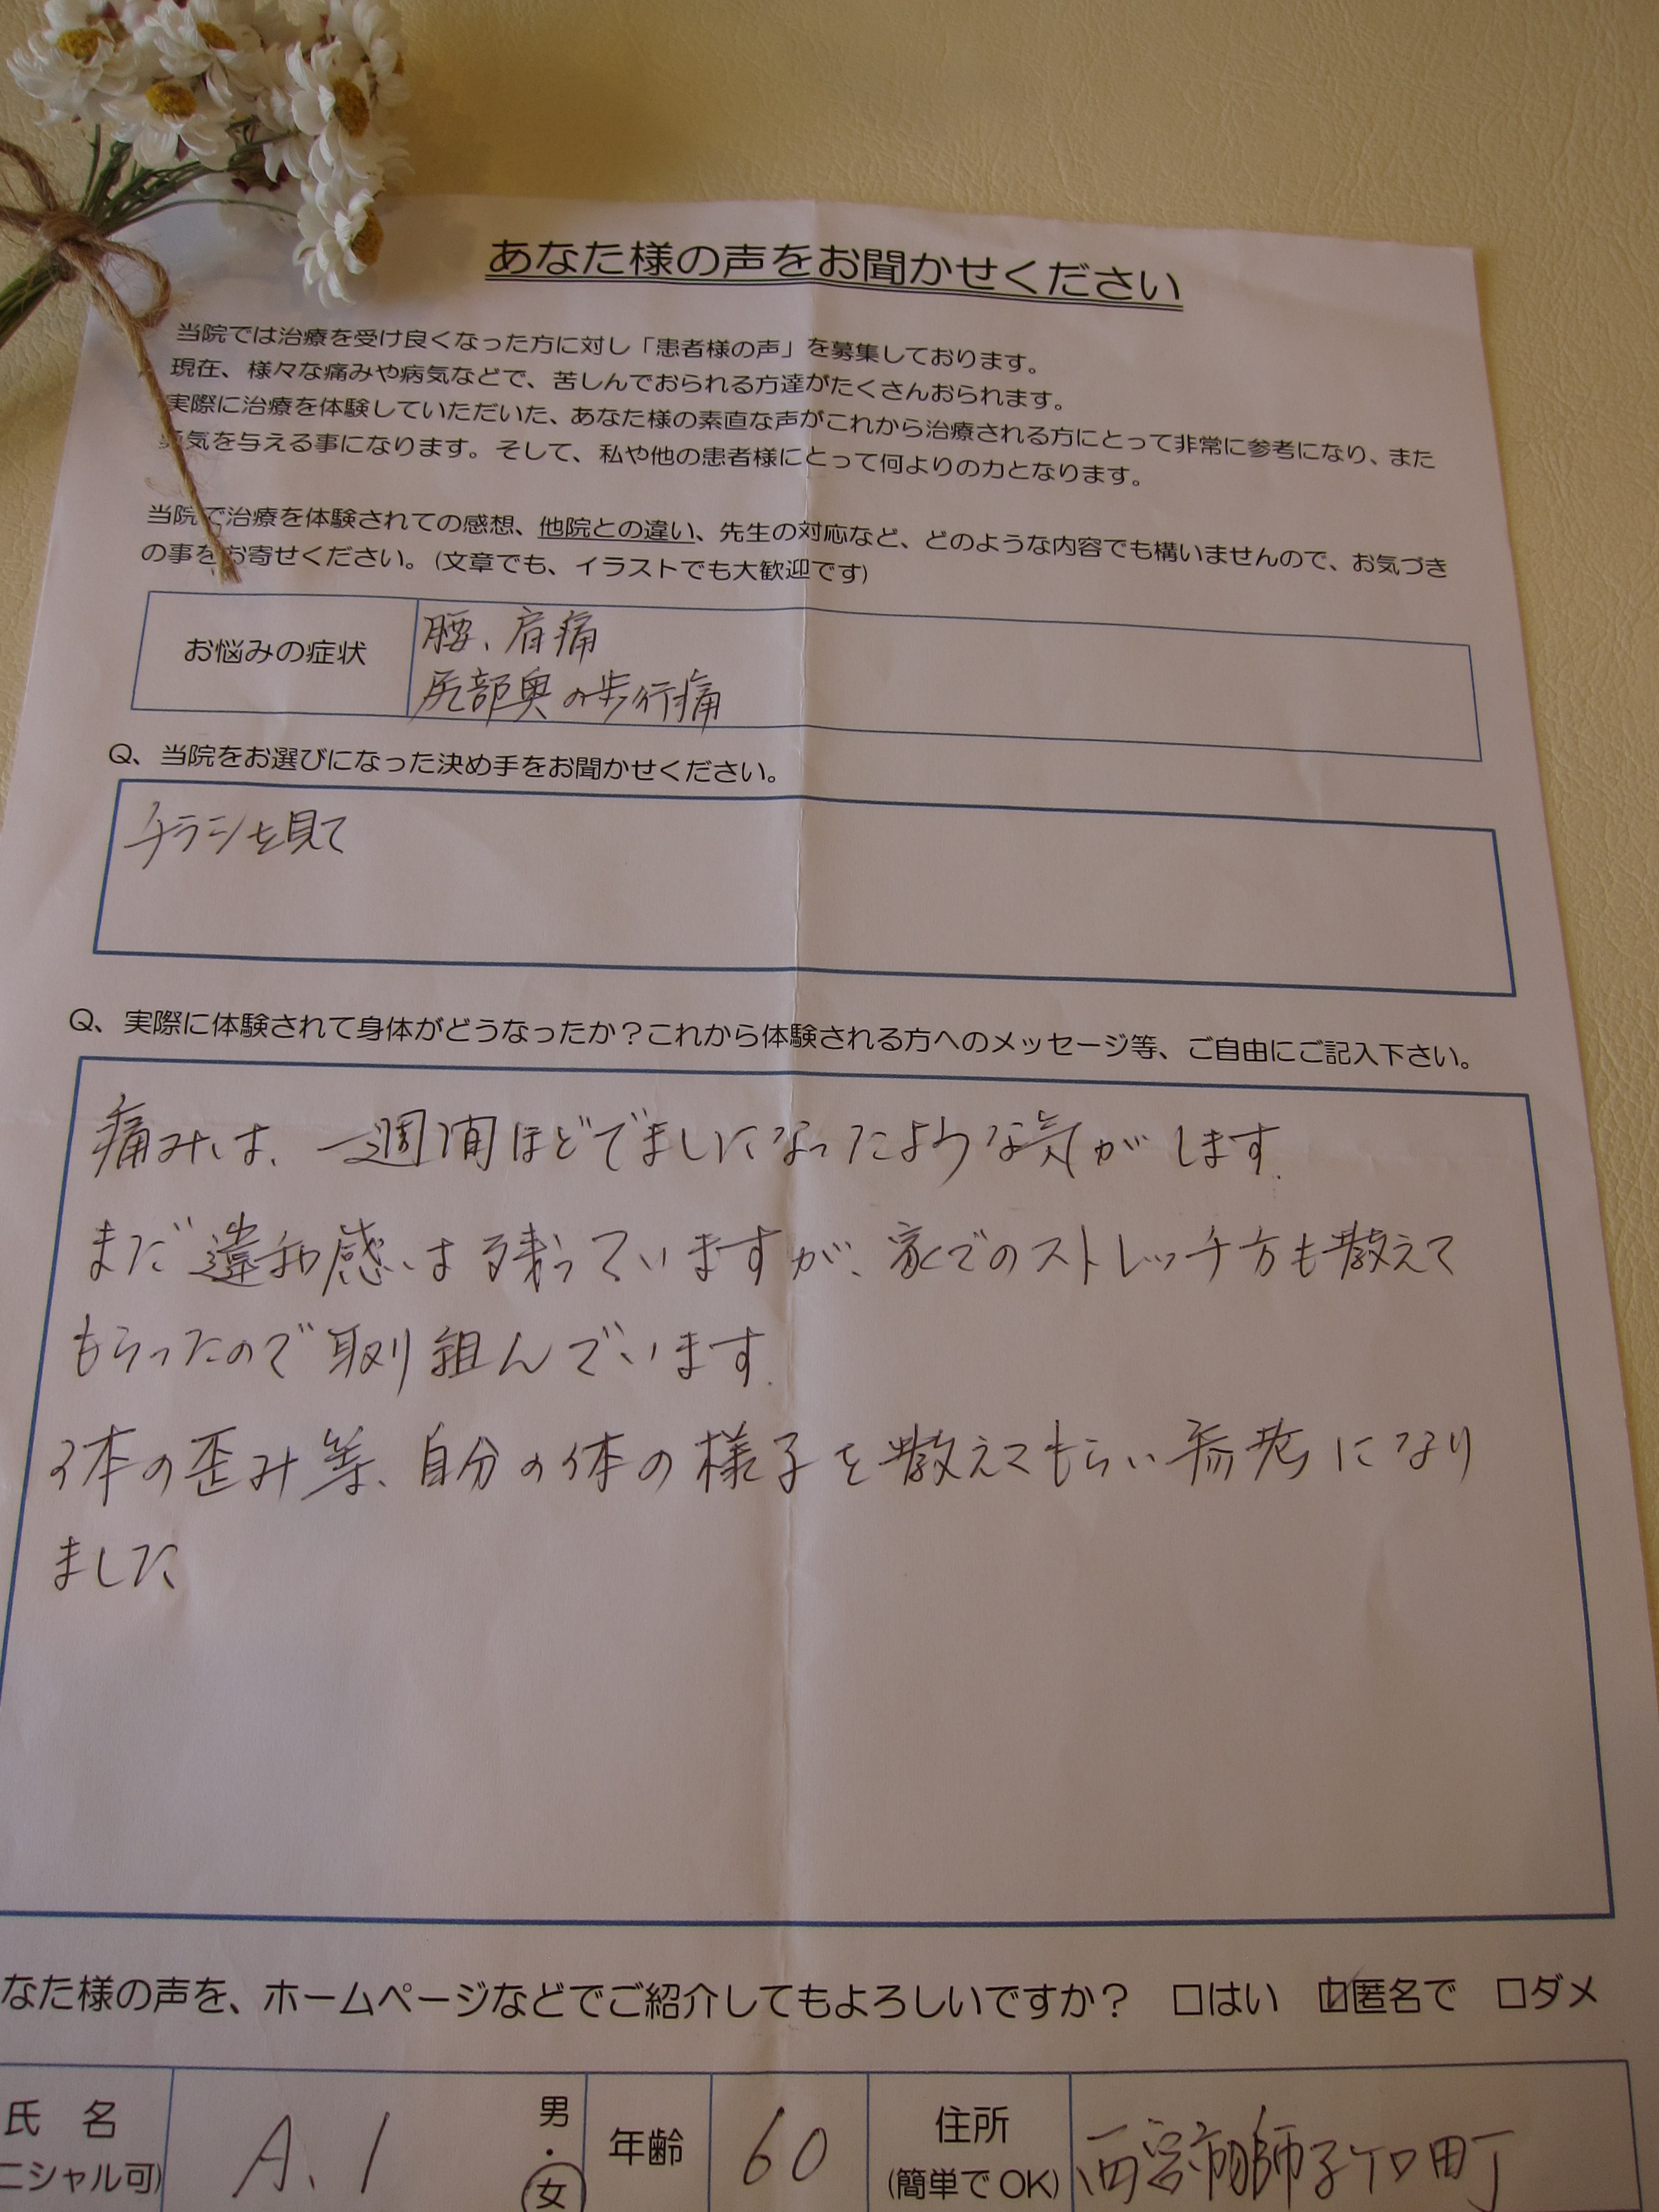 あなた様の声をお聞かせください
当院では治療を受け良くなった方に対し「患者様の声」を募集しております。
現在、様々な痛みや病気などで、苦しんでおられる方達がたくさんおられます。
実際に治療を体験していただいた、あなた様の素直な声がこれから治療される方にとって非常に参考になり、また
勇気を与える事になります。そして、私や他の患者様にとって何よりの力となります。
当院で治療を体験されての感想、他院との違い、先生の対応など、どのような内容でも構いませんので、お気づき
の事をお寄せください。(文章でも、イラストでも大歓迎です)
お悩みの症状
腰、肩痛
尻部奥の歩行痛
Q、当院をお選びになった決め手をお聞かせください。
チラシを見て
Q、実際に体験されて身体がどうなったか？これから体験される方へのメッセージ等、ご自由にご記入下さい。
痛みは、一週間ほどでましになったような気がします.
まだ違和感は残っていますが、家でのストレッチ方も教えて
もらったので取り組んでいます.
体の歪み等、自分の体の様子を教えてもらい参考になり
ました
なた様の声を、ホームページなどでご紹介してもよろしいですか？ □はい ☑匿名で □ダメ
氏 名
ニシャル可)
A. I
男・女
年齢
60
住所
(簡単でOK)
西宮市獅子ケ口町